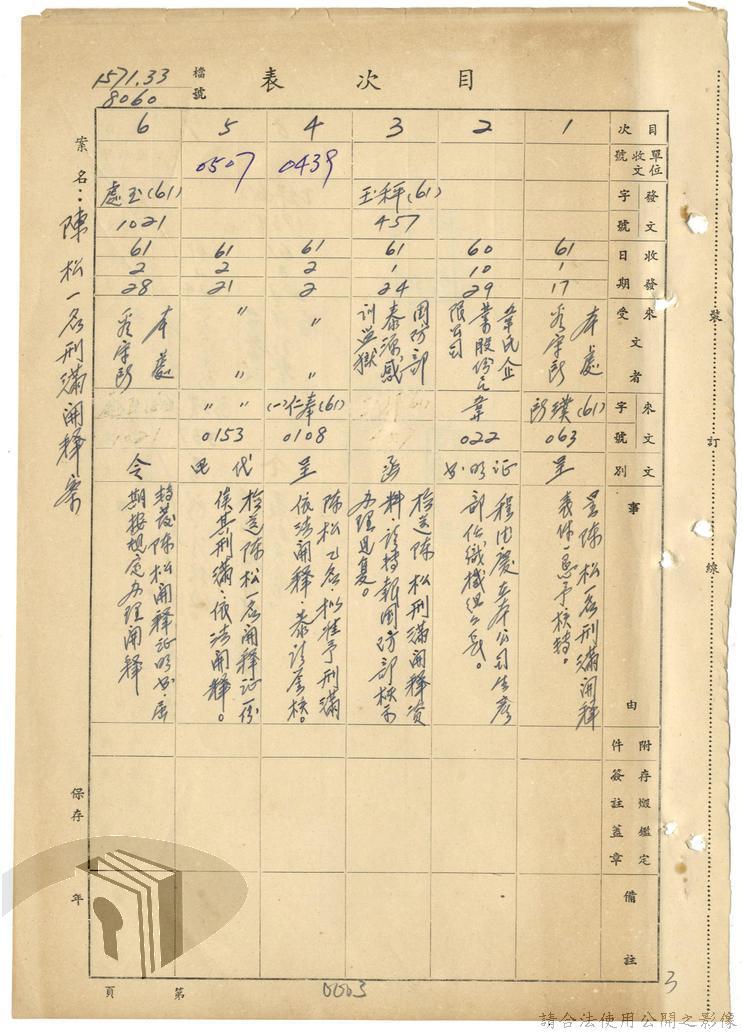 目次表
檔號
1571.33
8060
案名：陳松一名刑滿開釋案
目次
單位收文號
發文字號
收發日期
來文受文者
來文字號
文別
事由
附件
存燬鑑定簽註蓋章
備註
1
61
1
17
本處
(61)
063
呈
呈陳松一名刑滿開釋
表件一懇予核轉。
2
60
10
29
韋氏企
業股份有
限公司
韋
022
証明書
在本公司生產
部任織機組
3
(61)
457
61
1
24
國防部
泰源感
訓監獄
函
檢送陳松刑滿開釋資
料，請轉報國防部核示
辦理見复。
4
0439
61
2
2
〃
〃
(61)奉仁(一)
0108
呈
陳松乙名，擬准予刑滿
依法開釋，恭請鑒核。
5
0507
61
2
21
〃
〃
〃
〃
0153
代電
檢送陳松一名開釋証一份
俟其刑滿，依法開釋。
6
(61)
1021
61
2
28
本處
令
轉發陳松開釋証明書屆
期按規定辦理開釋
保存 年
第 頁
0003
3
裝訂線
請合法使用公開之影像